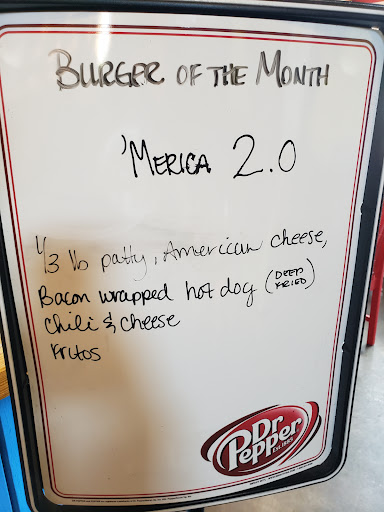 BURGER OF THE MONTH
'MERICA 2.0
1/3 lb patty, American cheese,
Bacon wrapped hot dog (DEEP FRIED)
Chili & cheese
Fritos
Dr Pepper